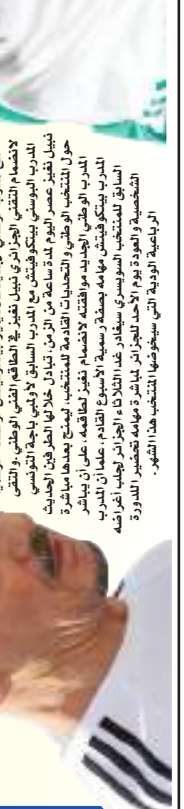 لانضمام التقني الجزائري نبيل نغيز في الطاقم الفني الوطني. والتقى
المدرب البوسني بيتكوفيتش مع المدرب السابق لأولمبي باجة التونسي
نبيل نغيز عصر اليوم لمدة ساعة من الزمن، تبادل خلالها الطرفين الحديث
حول المنتخب الوطني و التحديات القادمة للمنتخب، ليمنح بعدها مباشرة
المدرب الوطني الجديد موافقته لانضمام نغيز لطاقمه، على أن يباشر
المدرب بيتكوفيتش مهامه بصفة رسمية الأسبوع القادم، علما أن المدرب
السابق للمنتخب السويسري سيغادر غدا الثلاثاء الجزائر لجلب أغراضه
الشخصية و العودة يوم الأحد للجزائر لمباشرة مهامه تحضير اللدورة
الرباعية الودية التي سيخوضها المنتخب هذا الشهر.